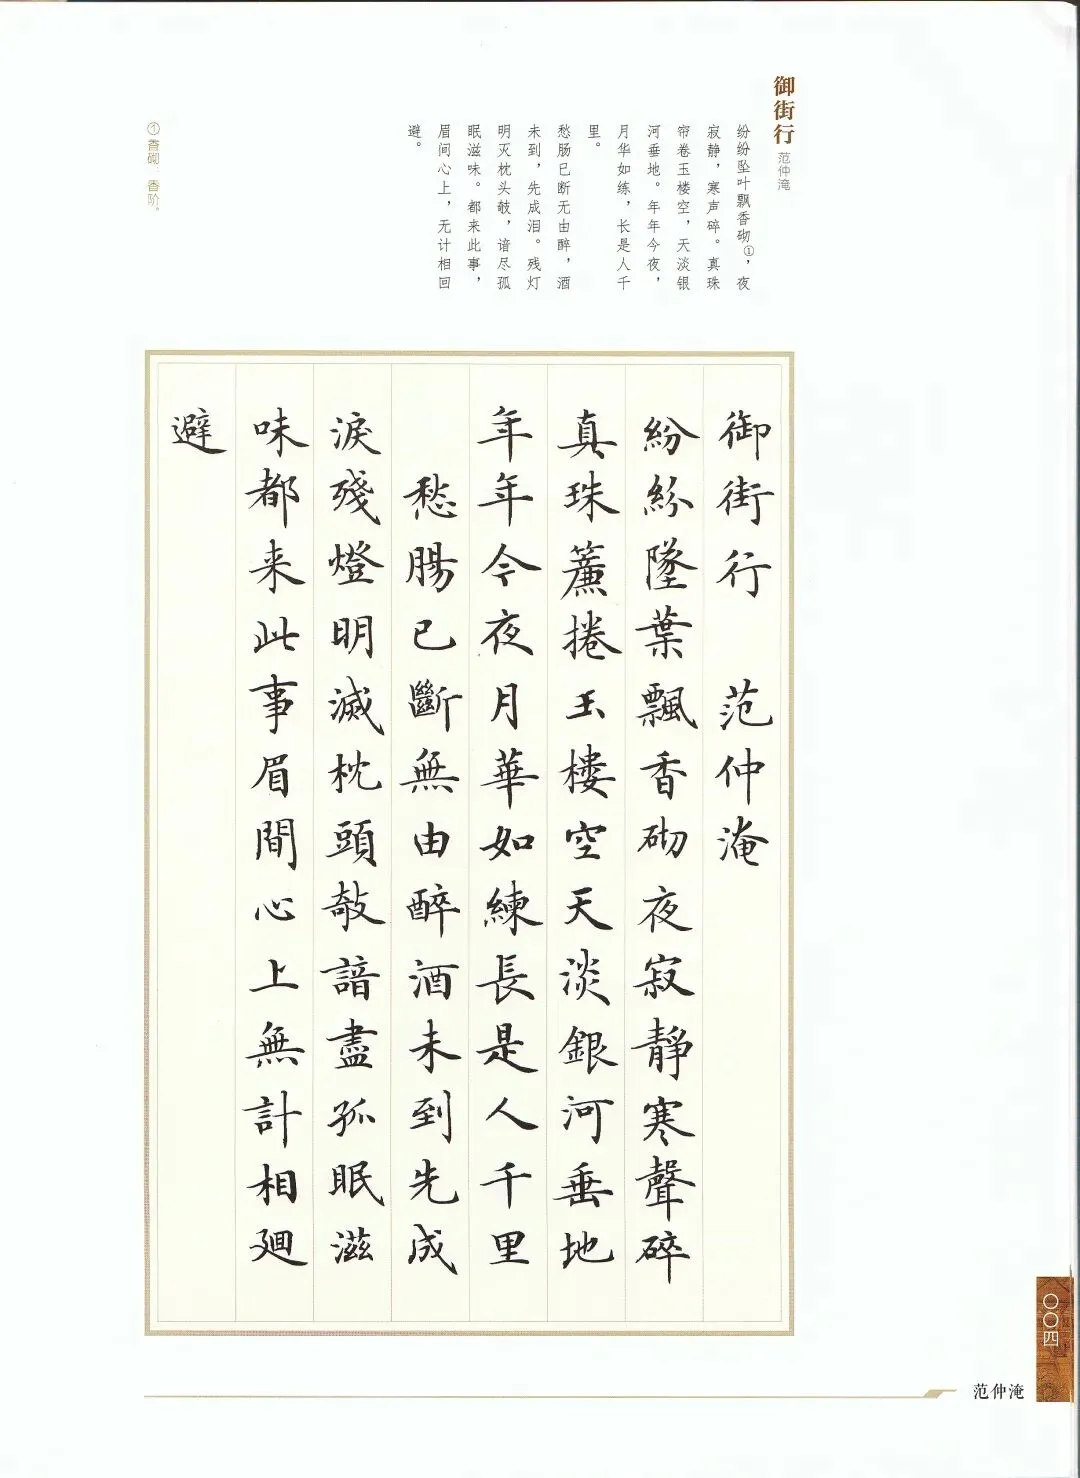 御街行 范仲淹
纷纷坠叶飘香砌①，夜
寂静，寒声碎。真珠
帘卷玉楼空，天淡银
河垂地。年年今夜，
月华如练，长是人千
里。
愁肠已断无由醉，酒
未到，先成泪。残灯
明灭枕头敧，谙尽孤
眠滋味。都来此事，
眉间心上，无计相回
避。
①香砌：香阶。
御街行 范仲淹
紛紛墜葉飄香砌夜寂靜寒聲碎
真珠簾捲玉樓空天淡銀河垂地
年年今夜月華如練長是人千里
愁腸已斷無由醉酒未到先成
淚殘燈明滅枕頭敧諳盡孤眠滋
味都来此事眉間心上無計相迴
避
〇〇四
范仲淹